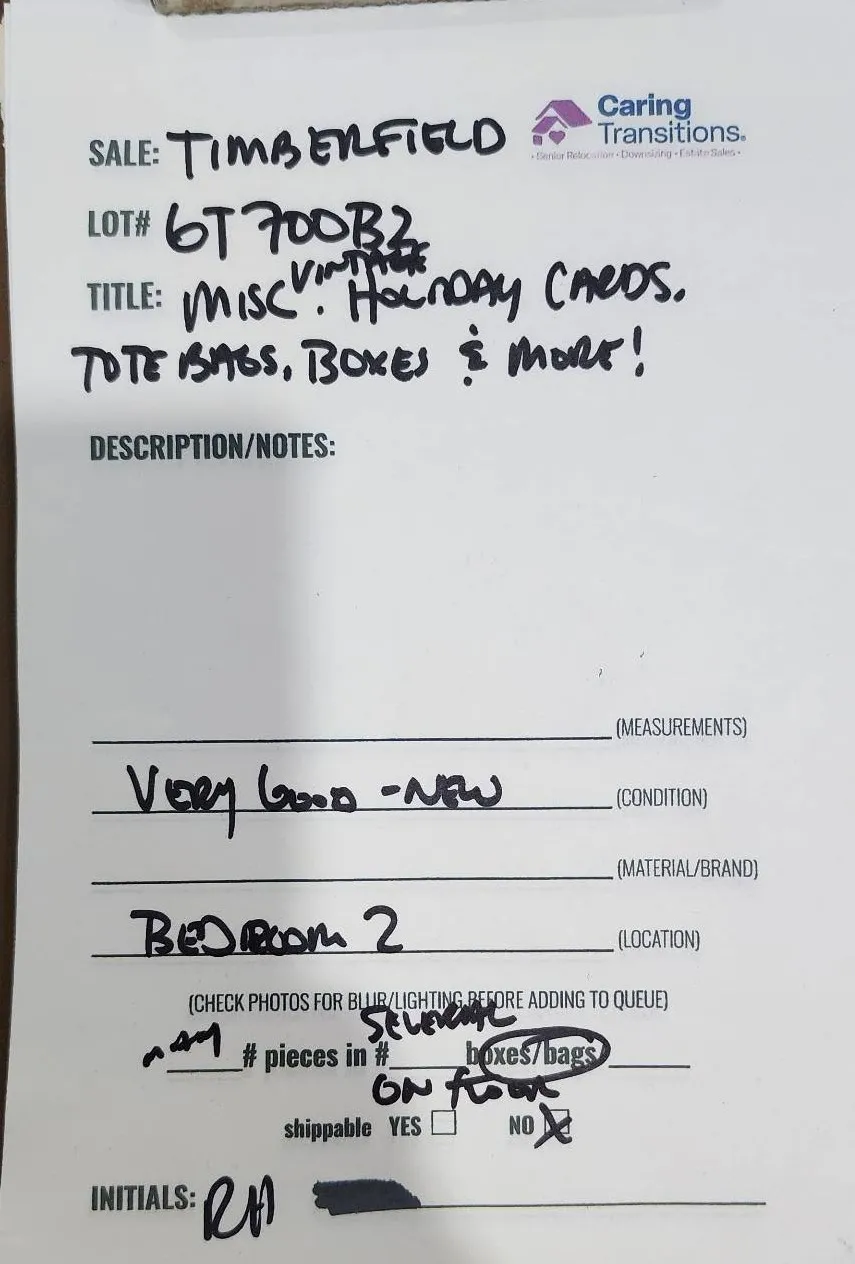 Caring
Transitions.
• Senior Relocation • Downsizing • Estate Sales •
SALE: TIMBERFIELD
LOT# 6T700B2
VINTAGE
TITLE: MISC. HOLIDAY CARDS,
TOTE BAGS, BOXES & MORE!
DESCRIPTION/NOTES:
(MEASUREMENTS)
VERY GOOD - NEW (CONDITION)
(MATERIAL/BRAND)
BEDROOM 2 (LOCATION)
(CHECK PHOTOS FOR BLUR/LIGHTING BEFORE ADDING TO QUEUE)
SEVERAL
MANY # pieces in # boxes/bags
ON FLOOR
shippable YES NO X
INITIALS: RH